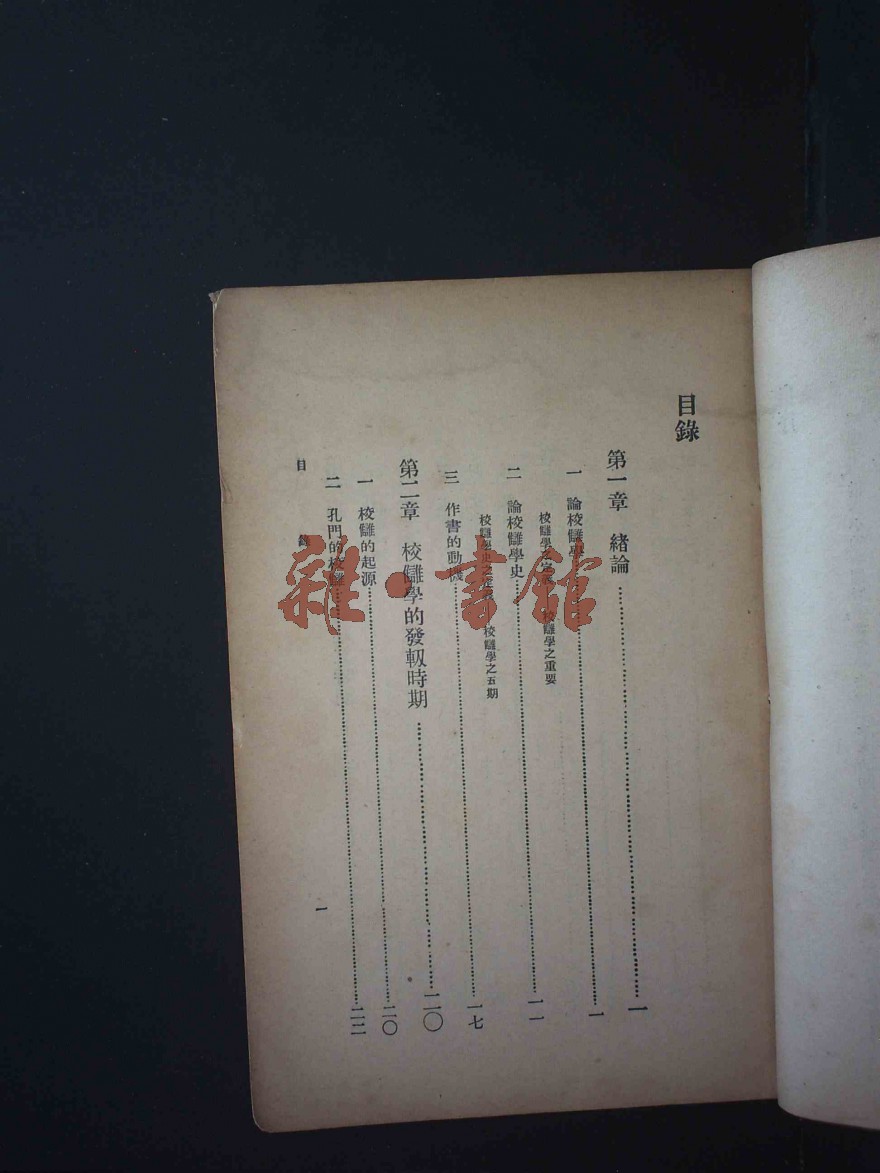 目錄
第一章　緒論⋯⋯一
一　論校讎學⋯⋯一
校讎學之定義　校讎學之重要
二　論校讎學史⋯⋯一一
校讎學史之定義　校讎學之五期
三　作書的動機⋯⋯一七
第二章　校讎學的發軔時期⋯⋯二〇
一　校讎的起源⋯⋯二〇
二　孔門的校讎⋯⋯二二
目錄
一
雜·書館